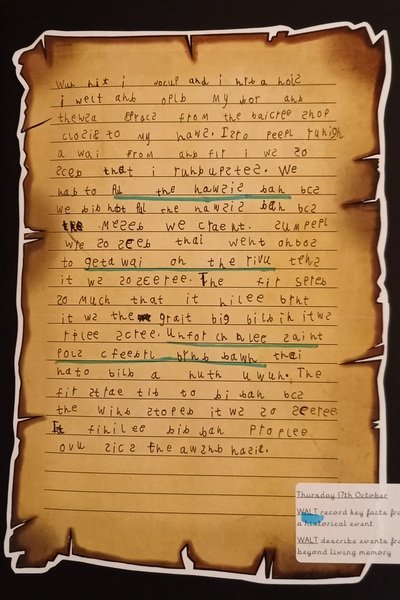 Wun nit i wocup and i hrb a nois
i welt anb oplb my bor anb
thewsa firac from the baicree shop
closie to my haws. I sro peepl runigh
a wai from anb fir i ws so
sceb that i runbupsteds. We
hab to Pul the hawsis bah bcs
we bib not Pul the hawsis bah bcs
the meses we craent. sumpepl
wre so sceb thai went onbos
to getawai on the rivu tens
it ws soseeree. The fir spreb
so much that it nilee brnt
it ws the grait big bilbih itws
rplee scree. Unforchalee saint
pols cfeebrl brnb bawh thai
hato bilb a nuth uwuh. The
fir strae tib to bi bah bcs
the winb stopeb it ws so seeree
It finilee bib bah proplee
ovu sics the awshb hasis.
Thursday 17th October
WALT record key facts
a historical event
WALT describe events
beyond living memory